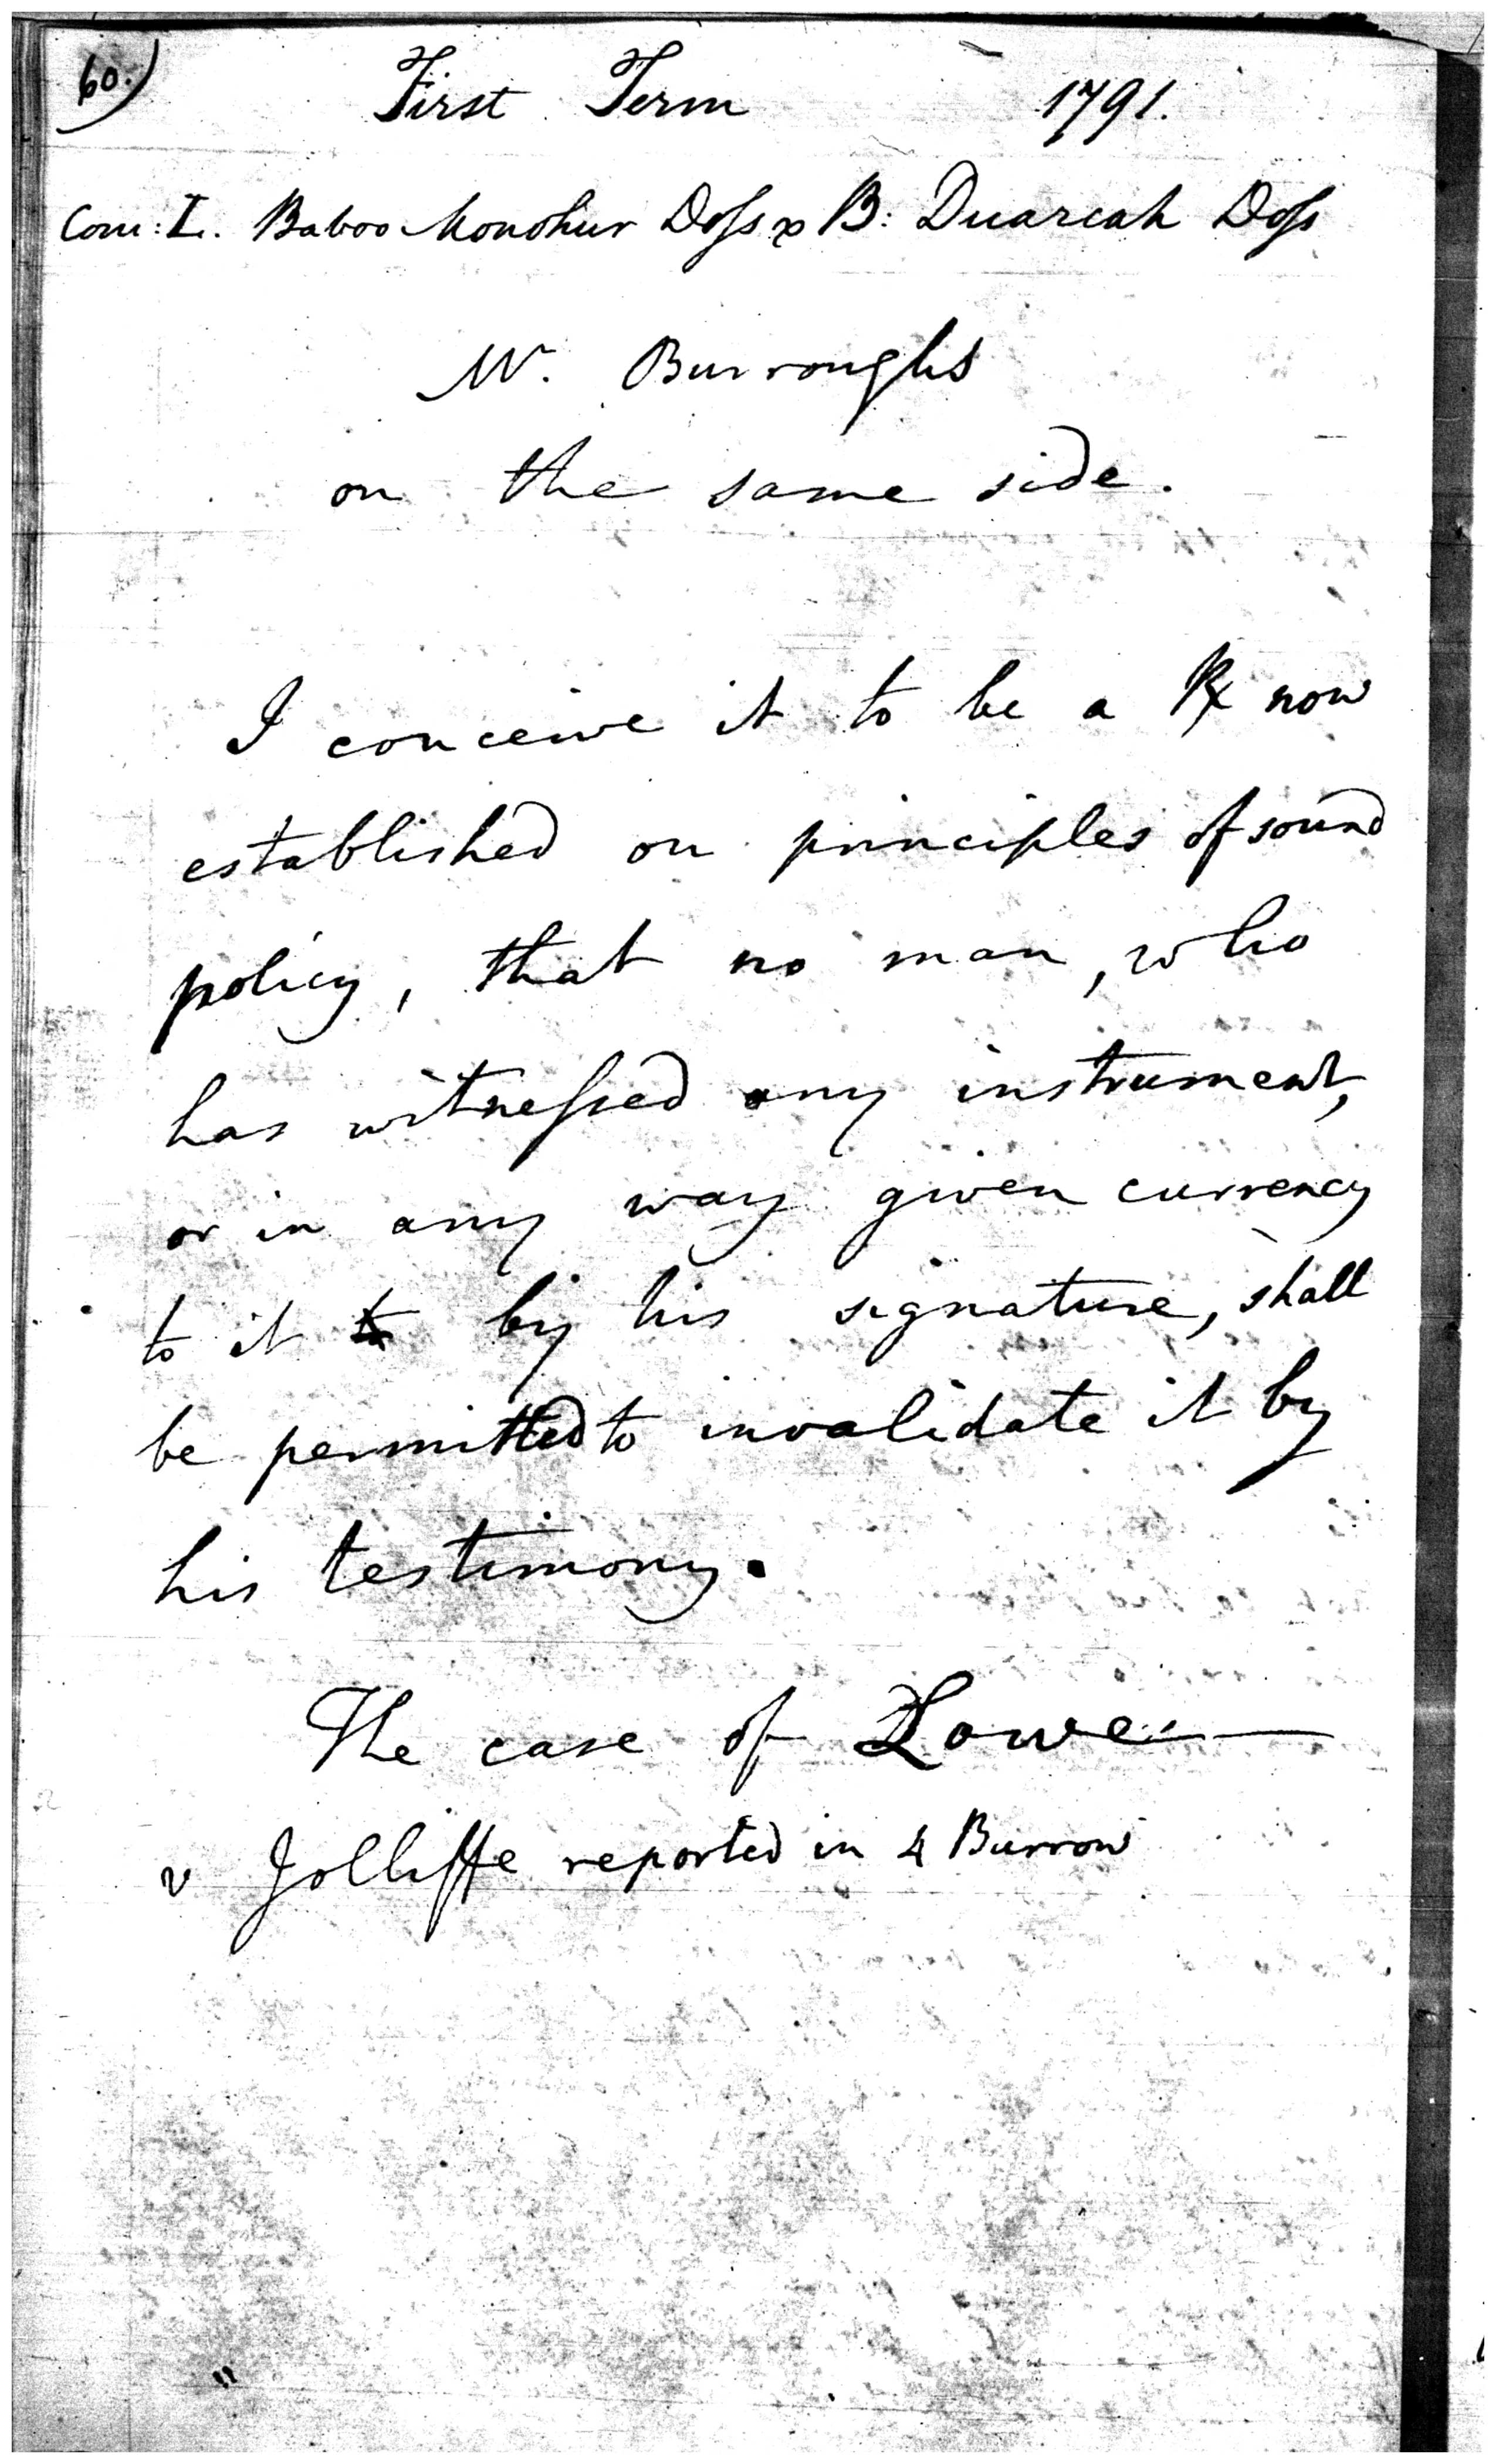 60.)
First Term 1791.
Com: L. Baboo Monohur Doss x B: Duarcah Doss
Mr. Burroughs
on the same side.
I conceive it to be a Rx now
established on principles of sound
policy, that no man, who
has witnessed any instrument,
or in any way given currency
to it by his signature, shall
be permitted to invalidate it by
his testimony.
The case of Lowe
v Jolliffe reported in 4 Burrow